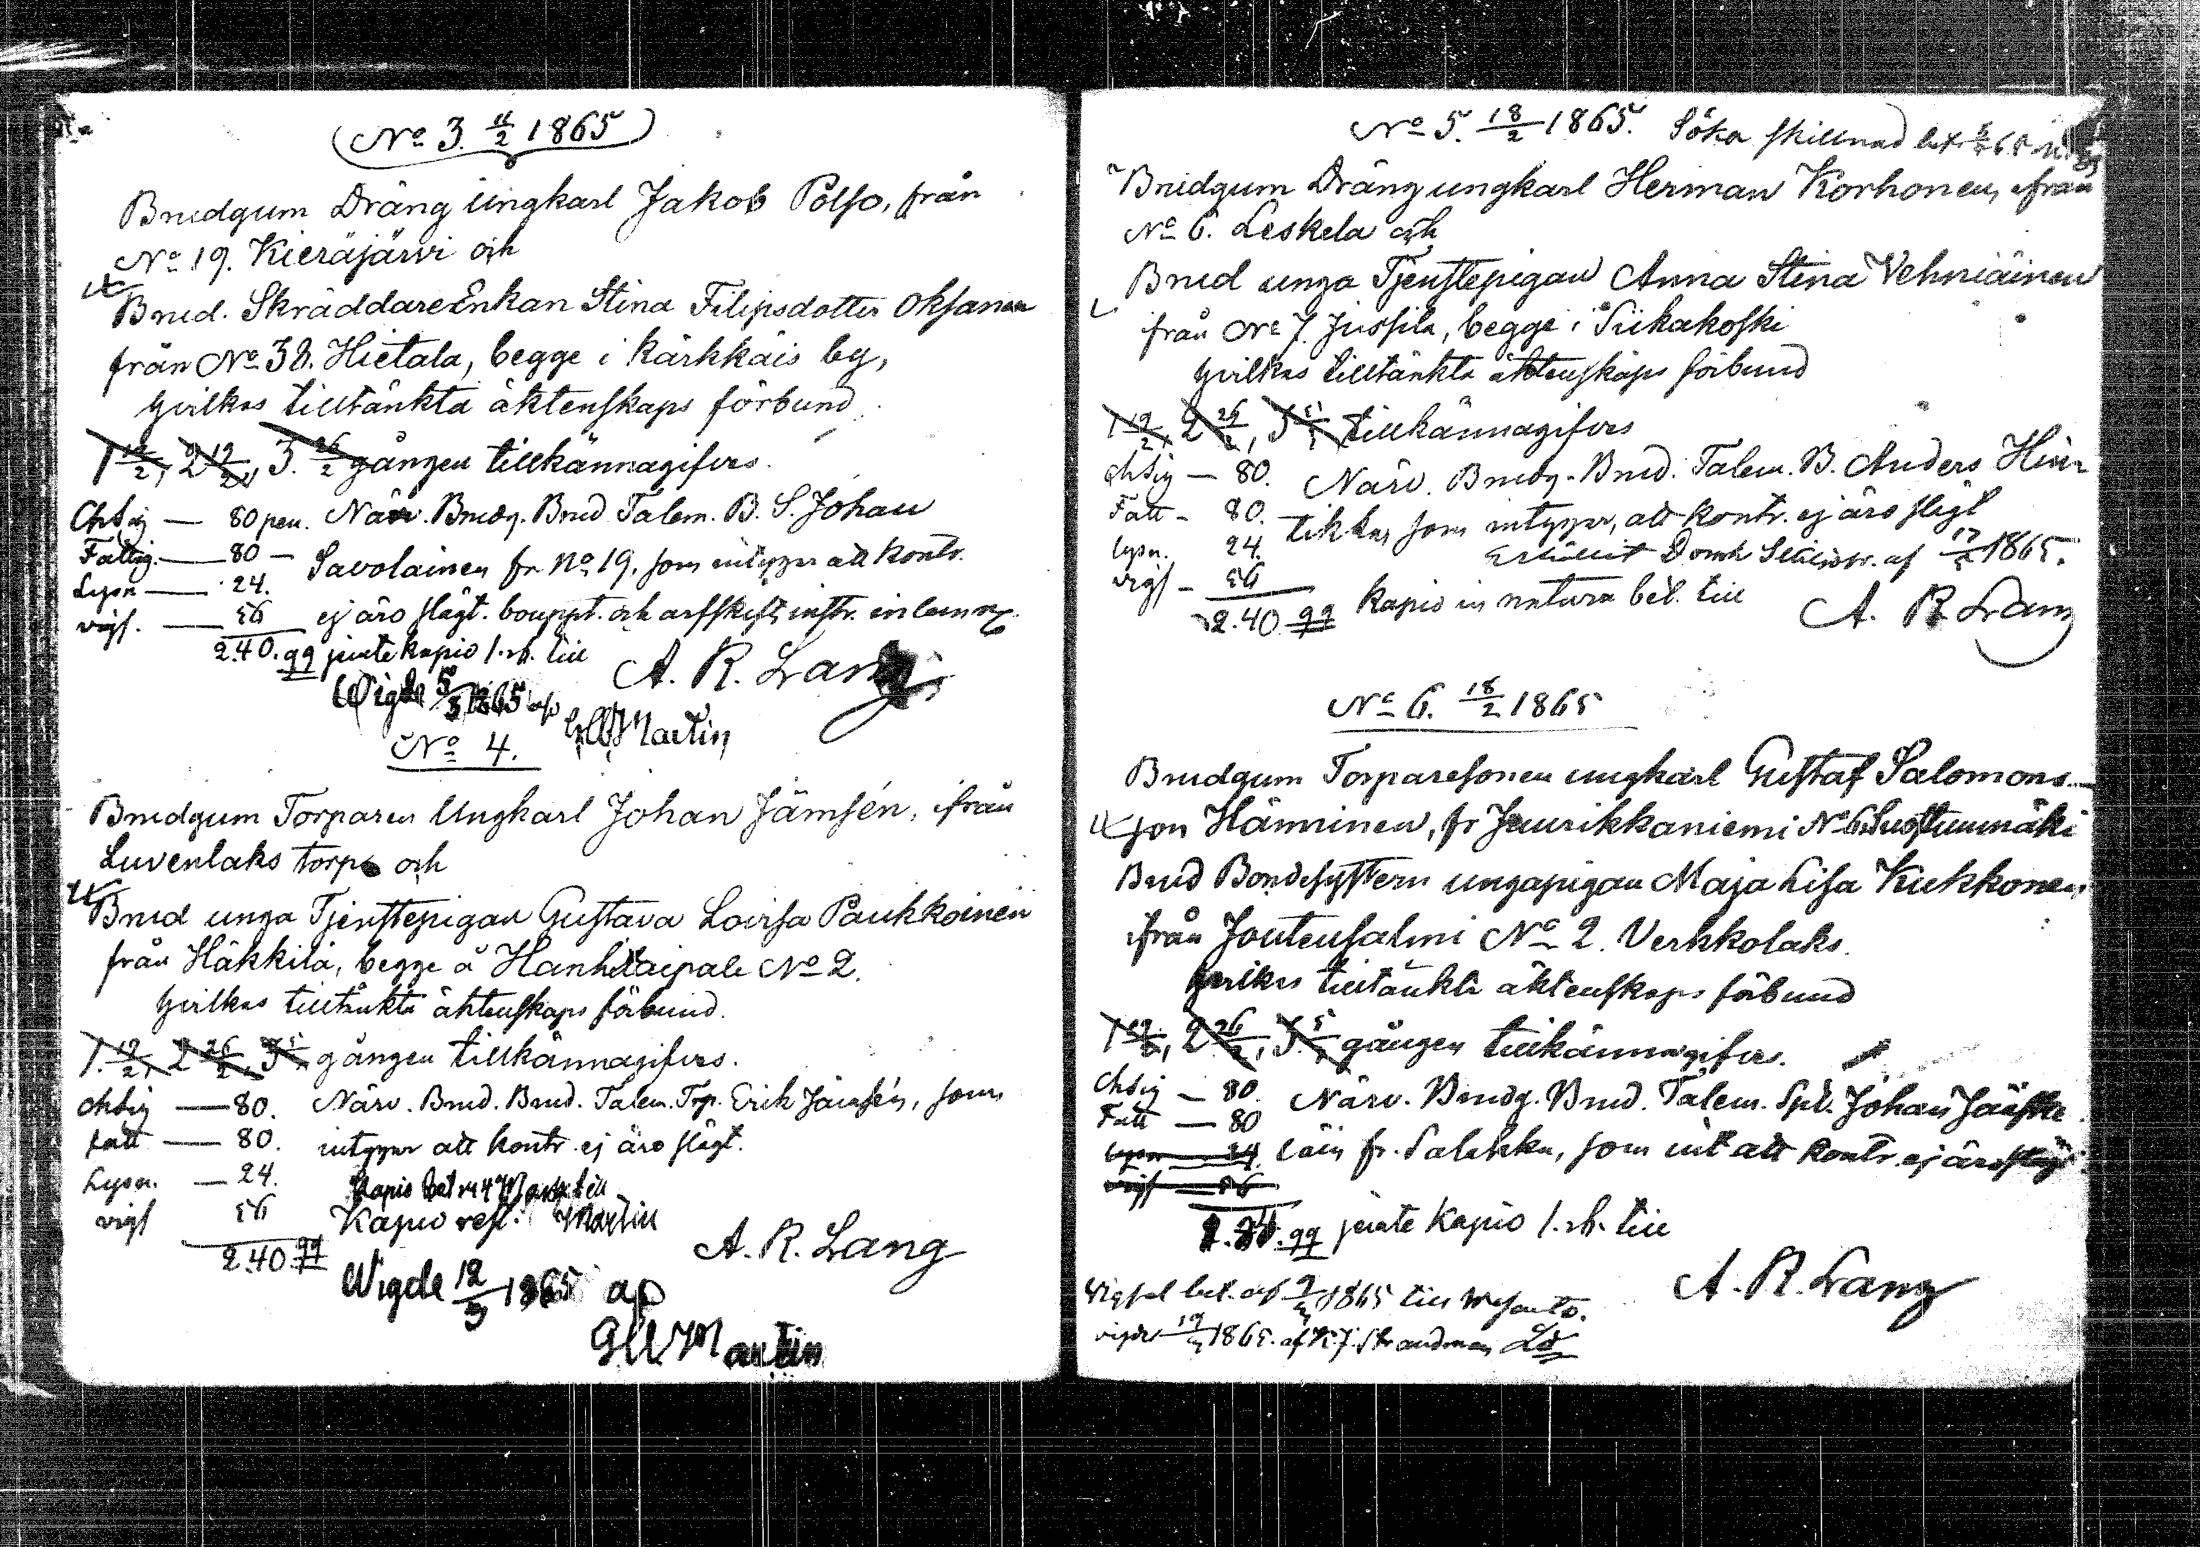 No 3. 11/2 1865
Brudgum Dräng Ungkarl Jakob Pölso, från
No 19. Kieräjärwi och
Brud. Skräddare Enkan Stina Filipsdotter Oksanen
från No 38. Hietala, begge i Kärkkäis by,
hvilkas tilltänkta äktenskaps förbund
1 12/2, 2 19/2, 3. 26/2 gången tillkännagifves.
Chsig — 80 pen. Närv. Brudg. Brud Talem. B. S. Johan
Fattig. — 80 — Savolainen fr No 19, som intygar att kontr.
Lysn — 24. ej äro slägt. bouppt. och arfskift. instr. inlemn.
vigs. — 56
2.40. 99 pente kapio 1. rb. till A. R. Lang
Wigde 5/3 1865 af Martin
No 4.
Brudgum Torparen Ungkarl Johan Jämsén, ifrån
Luvenlaks torp och
Brud unga Tjenstepigan Gustava Lovisa Paukkoinen
från Häkkilä, begge å Hanhilaipale No 2.
hvilkas tilltänkta äktenskaps förbund.
1. 19/2, 2 26/2, 3 5/3 gången tillkännagifves.
chsig — 80. Närv. Brud. Brud. Talem. Trp. Erik Jämsén, som
fatt — 80. intygar att kontr. ej äro slägt.
Lysn. — 24. Kapio bet till
vigs 56 Kapio rest. Martin
2.40 99 A. R. Lang
Wigde 12/3 1865 af
Martin
No 5. 18/2 1865. Söka skillnad
Brudgum Dräng ungkarl Herman Korhonen, ifrån
No 6. Leskela och
Brud unga Tjenstepigan Anna Stina Vehniäinen
från No 7. Jussila, begge i Siikakoski
hvilkas tilltänkta äktenskaps förbund
1 19/2, 2 26/2, 3 5/3 tillkännagifves
chsig — 80. Närv. Brudg. Brud. Talem. B. Anders Hin
Fatt - 80. tikka, som intygar, att kontr. ej äro slägt
lysn. 24. Domk af 1865.
vigs - 56
2.40 99 kapio in natura bet. till A. R. Lang
No 6. 18/2 1865
Brudgum Torparesonen ungkarl Gustaf Salomons
son Hänninen, fr Juurikkaniemi No 6 Suostunmäki
Brud Bondesystern ungapigan Maja Lisa Kukkonen,
ifrån Joutensalmi No 2. Verkkolaks.
hvilkas tilltänkta äktenskaps förbund
1 19/2, 2 26/2, 3 5/3 gången tillkännagifves.
Chsig — 80. Närv. Brudg. Brud. Talem. Spl. Johan Jääske
Fatt — 80 läin fr. Salahka, som int att kontr ej äro slägt
lysn — 24
vigs — 56
99 pente Kapio 1. rb. till
A. R. Lang
Vigsel bet. af 1865 till
vigde 19/3 1865. af K. J. Strandman